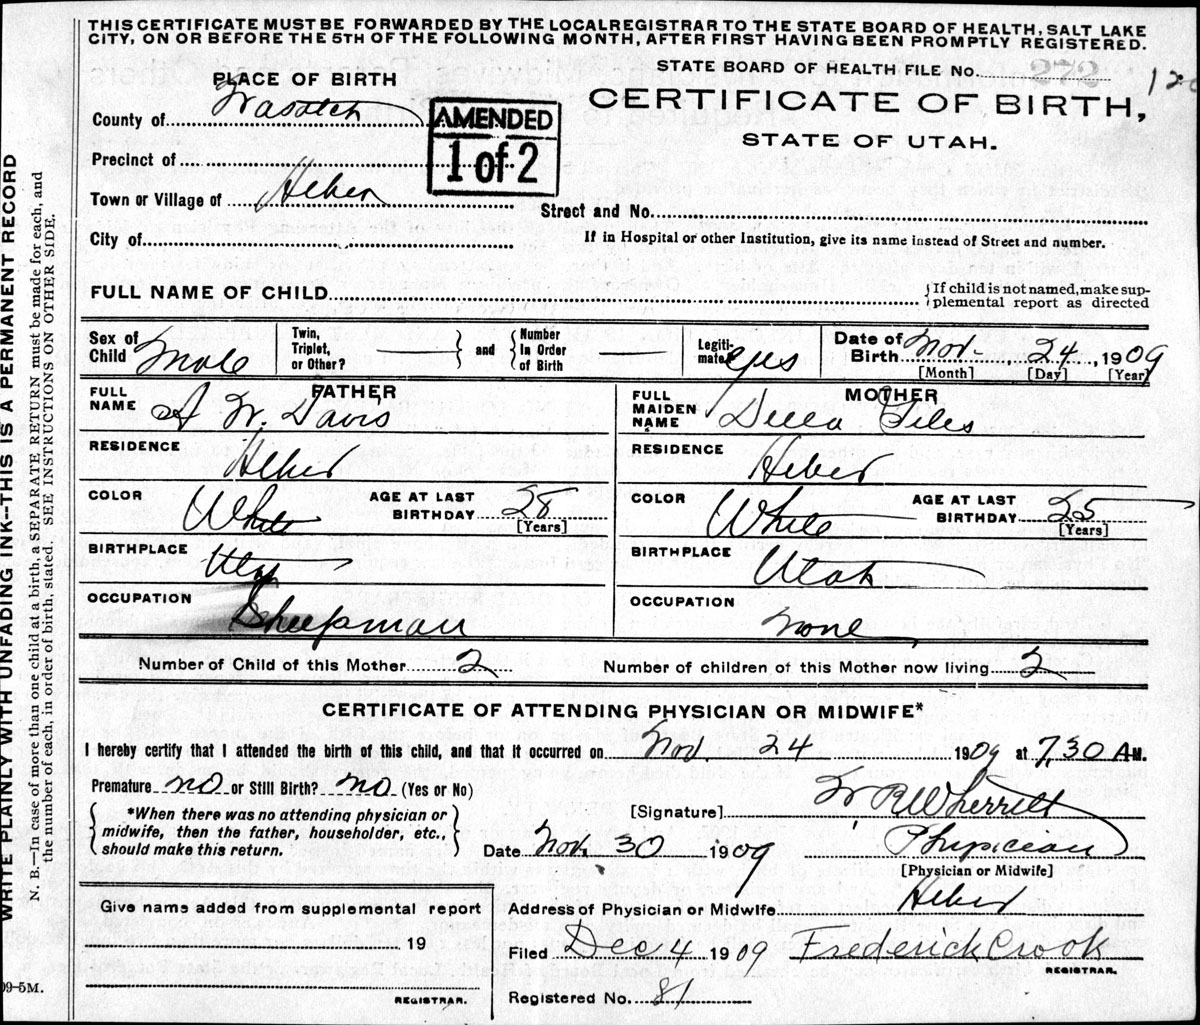 THIS CERTIFICATE MUST BE FORWARDED BY THE LOCAL REGISTRAR TO THE STATE BOARD OF HEALTH, SALT LAKE
CITY, ON OR BEFORE THE 5TH OF THE FOLLOWING MONTH, AFTER FIRST HAVING BEEN PROMPTLY REGISTERED.
STATE BOARD OF HEALTH FILE No. 272
PLACE OF BIRTH
CERTIFICATE OF BIRTH,
STATE OF UTAH.
County of Wasatch
AMENDED
1 of 2
Precinct of
Town or Village of Heber
Street and No.
City of
If in Hospital or other Institution, give its name instead of Street and number.
FULL NAME OF CHILD
{If child is not named, make sup-
plemental report as directed
Sex of Child Male
Twin, Triplet, or Other? } and { Number In Order of Birth
Legiti-mate? yes
Date of Birth Nov. 24, 1909
[Month] [Day] [Year]
FATHER
FULL NAME A W. Davis
RESIDENCE Heber
COLOR White AGE AT LAST BIRTHDAY 28
[Years]
BIRTHPLACE Utah
OCCUPATION Sheepman
MOTHER
FULL MAIDEN NAME Della
RESIDENCE Heber
COLOR White AGE AT LAST BIRTHDAY 25
[Years]
BIRTHPLACE Utah
OCCUPATION none
Number of Child of this Mother 2 Number of children of this Mother now living 2
CERTIFICATE OF ATTENDING PHYSICIAN OR MIDWIFE*
I hereby certify that I attended the birth of this child, and that it occurred on Nov. 24 1909 at 7,30 A M.
Premature no or Still Birth? no (Yes or No)
[Signature] W R Wherritt
{ *When there was no attending physician or
midwife, then the father, householder, etc.,
should make this return. }
Date Nov. 30 1909 Physician
[Physician or Midwife]
Give name added from supplemental report
19
REGISTRAR.
Address of Physician or Midwife Heber
Filed Dec 4 1909 Frederick Crook
REGISTRAR.
Registered No. 81
WRITE PLAINLY WITH UNFADING INK--THIS IS A PERMANENT RECORD
N. B.—In case of more than one child at a birth, a SEPARATE RETURN must be made for each, and
the number of each, in order of birth, stated. SEE INSTRUCTIONS ON OTHER SIDE.
09-5M.